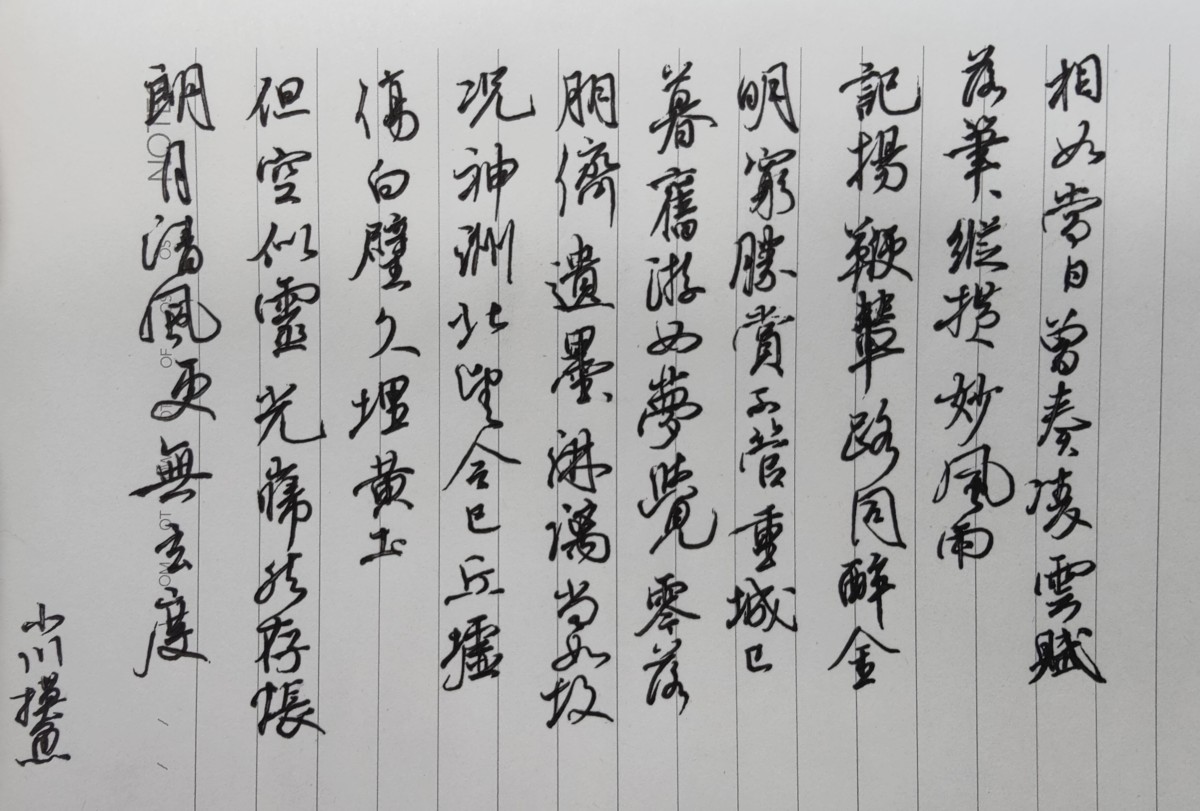 相如當日曾奏凌雲賦
落筆縱橫妙風雨
記揚鞭輦路同醉金
明窮勝賞不管重城已
暮舊游如夢覺零落
朋儕遺墨淋漓尚如故
況神洲北望今已丘墟
傷白璧久埋黃土
但空似靈光巋然存悵
朗月清風更無玄度
小川摸魚